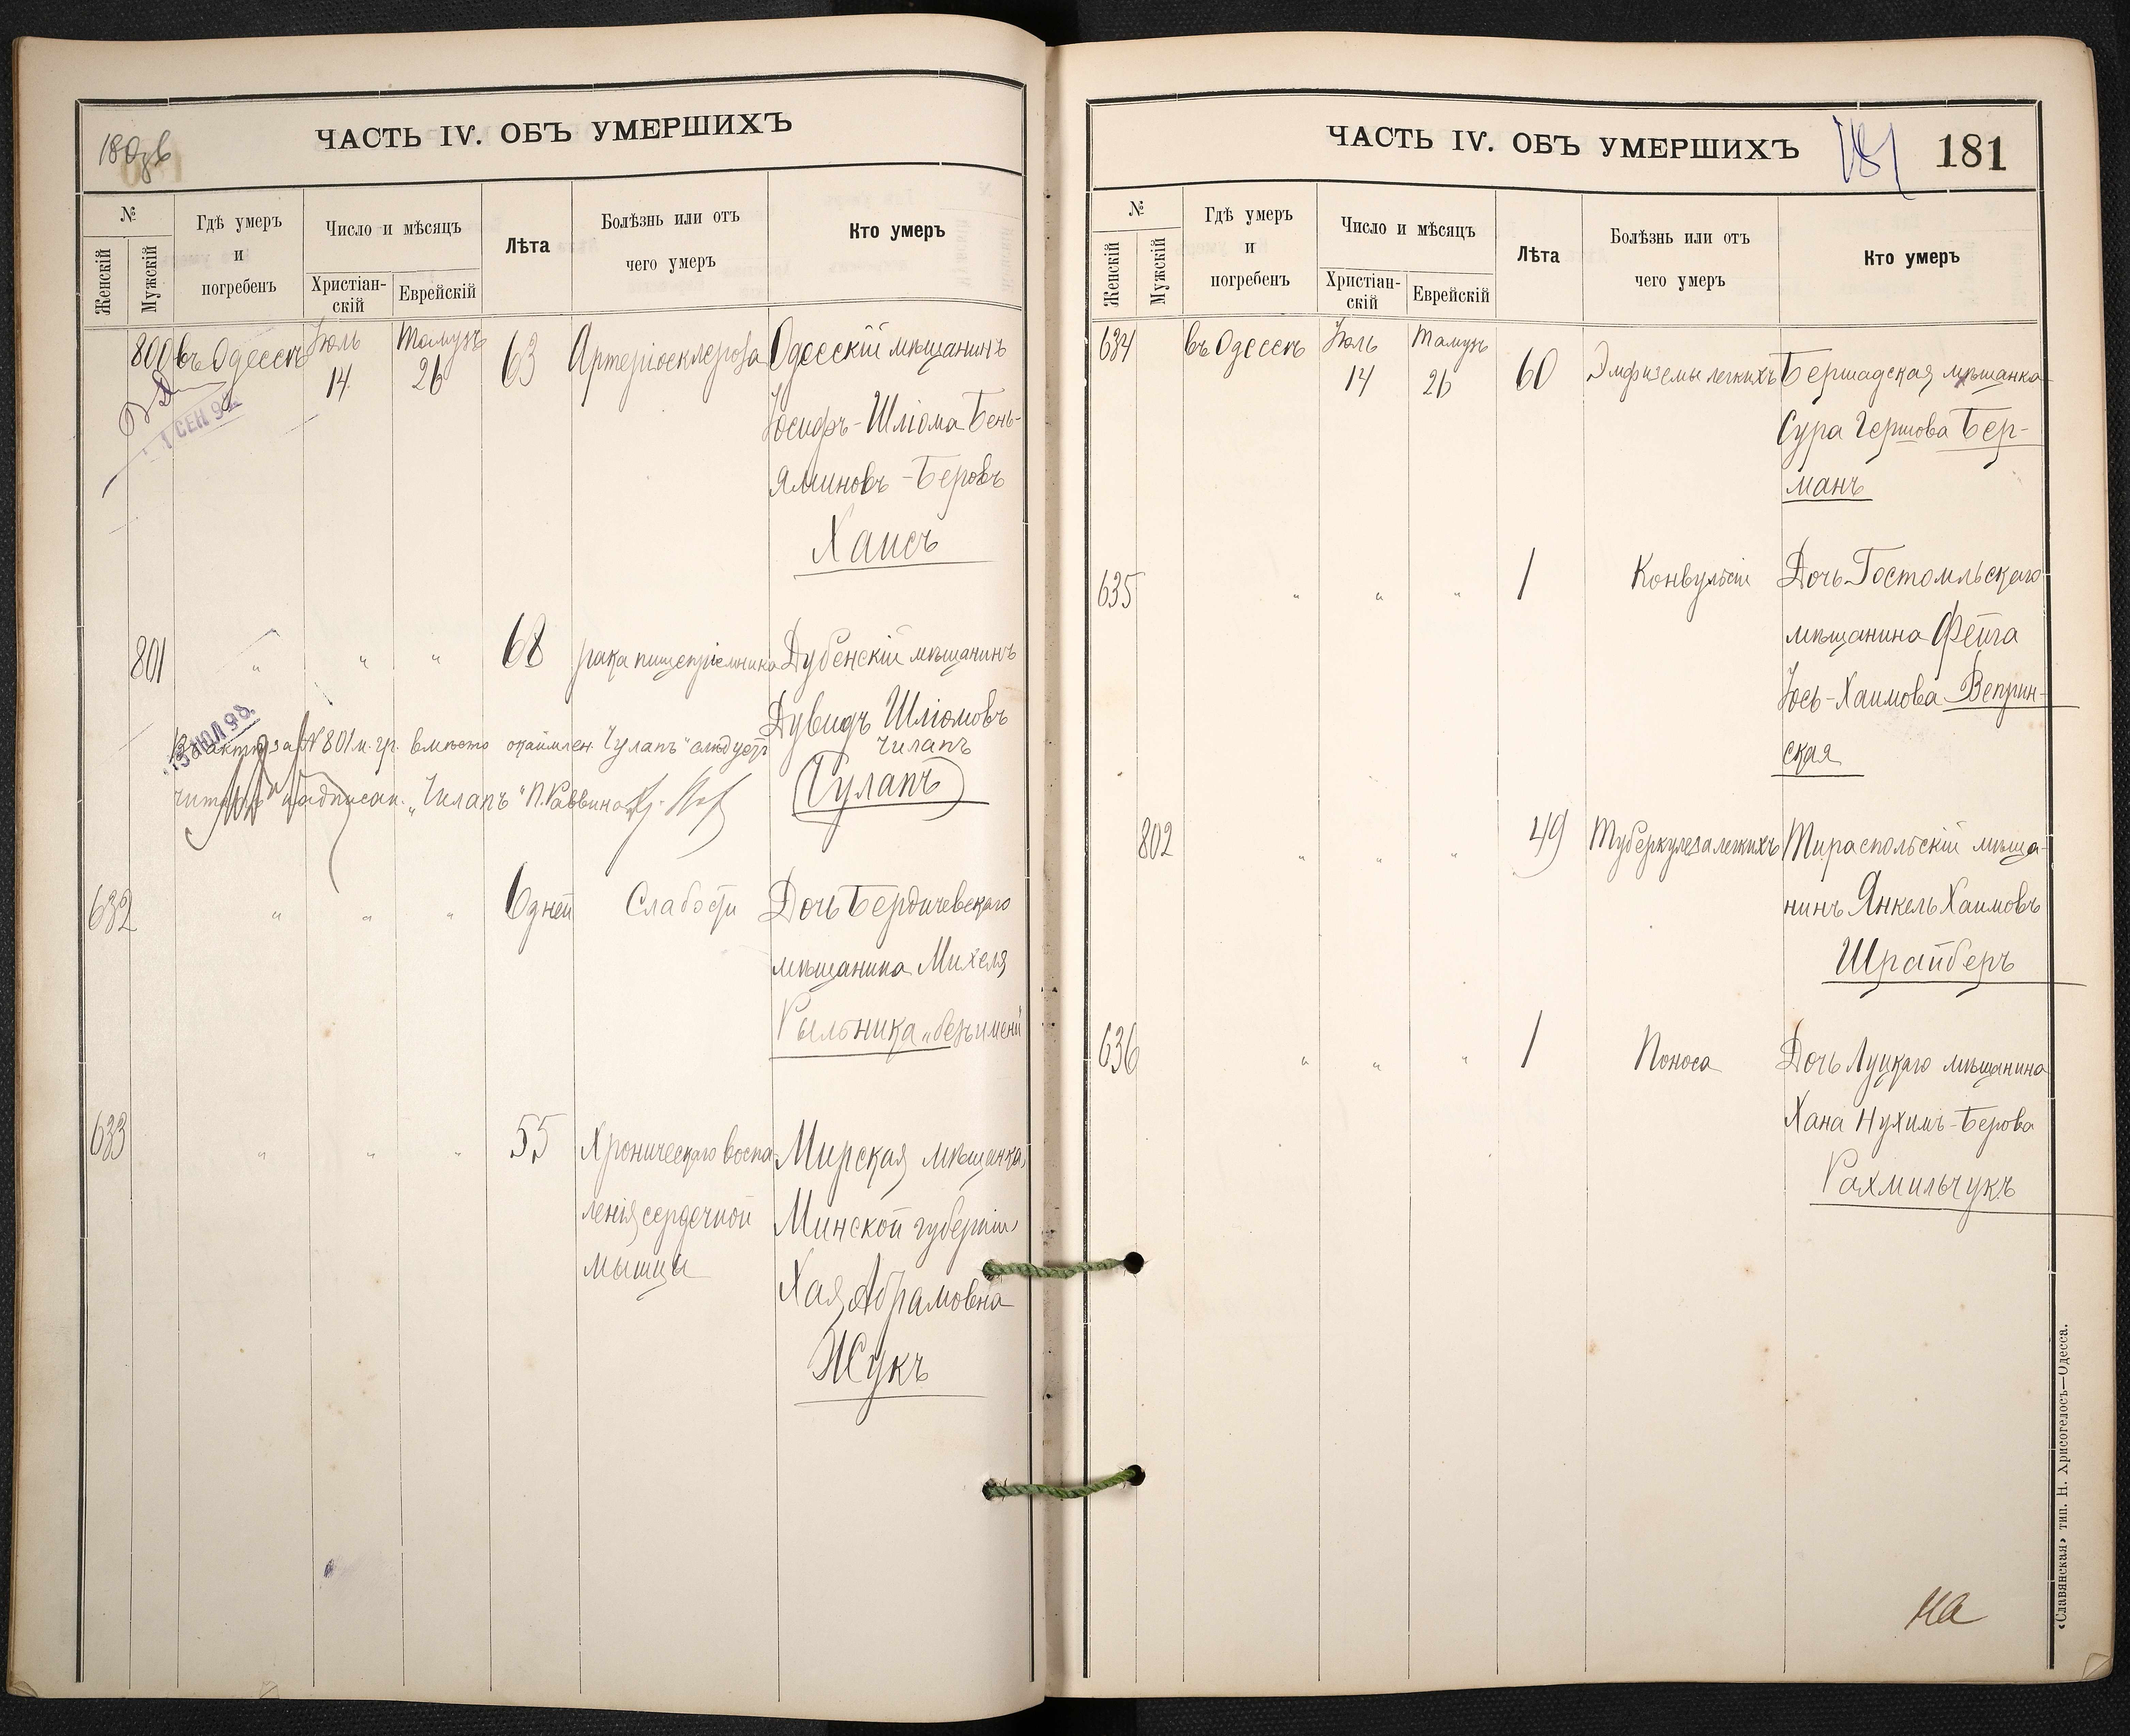 180 об
ЧАСТЬ IV. ОБЪ УМЕРШИХЪ
№
Женскій
Мужскій
Гдѣ умеръ
и
погребенъ
Число и мѣсяцъ
Христіан-
скій
Еврейскій
Лѣта
Болѣзнь или отъ
чего умеръ
Кто умеръ
800 въ Одессѣ Іюль Тамузъ 63 Артеріосклероза Одесскій мѣщанинъ
14 26
1 СЕН 98
Іосифъ-Шліома Бень-
яминовъ-Беровъ
Хаисъ
801 " " " 68 рака пищепріемника Дубенскій мѣщанинъ
Дувидъ Шліомовъ
Чилапъ
(Чулапъ)
ИЮЛ 98
Въ актѣ за № 801 м. гр. вмѣсто окаймлен. "Чулапъ" слѣдуетъ
читать надписан. "Чилапъ" П. Раввина
632 " " " 6 дней Слабости Дочь Бердичевскаго
мѣщанина Михеля
Рыльника "безъ имени"
633 " " " 55 Хроническаго воспа- Мирская мѣщанка
ленія сердечной Минской губерніи
мышцы Хая Абрамовна
Жукъ
ЧАСТЬ IV. ОБЪ УМЕРШИХЪ
181
181
№
Женскій
Мужскій
Гдѣ умеръ
и
погребенъ
Число и мѣсяцъ
Христіан-
скій
Еврейскій
Лѣта
Болѣзнь или отъ
чего умеръ
Кто умеръ
634 въ Одессѣ Іюль Тамузъ 60 Эмфиземы легкихъ Бершадская мѣщанка
14 26
Сура Гершова Бер-
манъ
635 " " " 1 Конвульсіи Дочь Гостомльскаго
мѣщанина Фейга
Іось-Хаимова Веприн-
ская
802 " " " 49 Туберкулеза легкихъ Тираспольскій мѣща-
нинъ Янкель Хаимовъ
Шрайберъ
636 " " " 1 Поноса Дочь Луцкаго мѣщанина
Хана Нухимъ-Берова
Рахмильчукъ
на
«Славянская» тип. Н. Хрисогелосъ—Одесса.